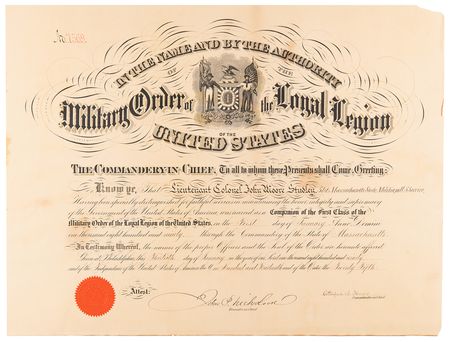 No. 7569.
IN THE NAME AND BY THE AUTHORITY
OF THE
Military Order of the Loyal Legion
OF THE
UNITED STATES
THE COMMANDERY-IN-CHIEF, To all to whom these Presents shall Come, Greeting:
Know ye, That Lieutenant Colonel John Moore Studley, Massachusetts
Having been specially distinguished for faithful service in maintaining the honor, integrity and supremacy
of the Government of the United States of America, was received as a Companion of the First Class of the
Military Order of the Loyal Legion of the United States, on the First day of January Anno Domini
one thousand eight hundred and ninety through the Commandery of the State of Massachusetts.
In Testimony Whereof, the names of the proper Officers and the Seal of the Order are hereunto affixed.
Given at Philadelphia, this day of January in the year of our Lord one thousand eight hundred and ninety
and of the Independence of the United States of America the One Hundred and and of the Order the Twenty Fifth.
Attest:
John P. Nicholson